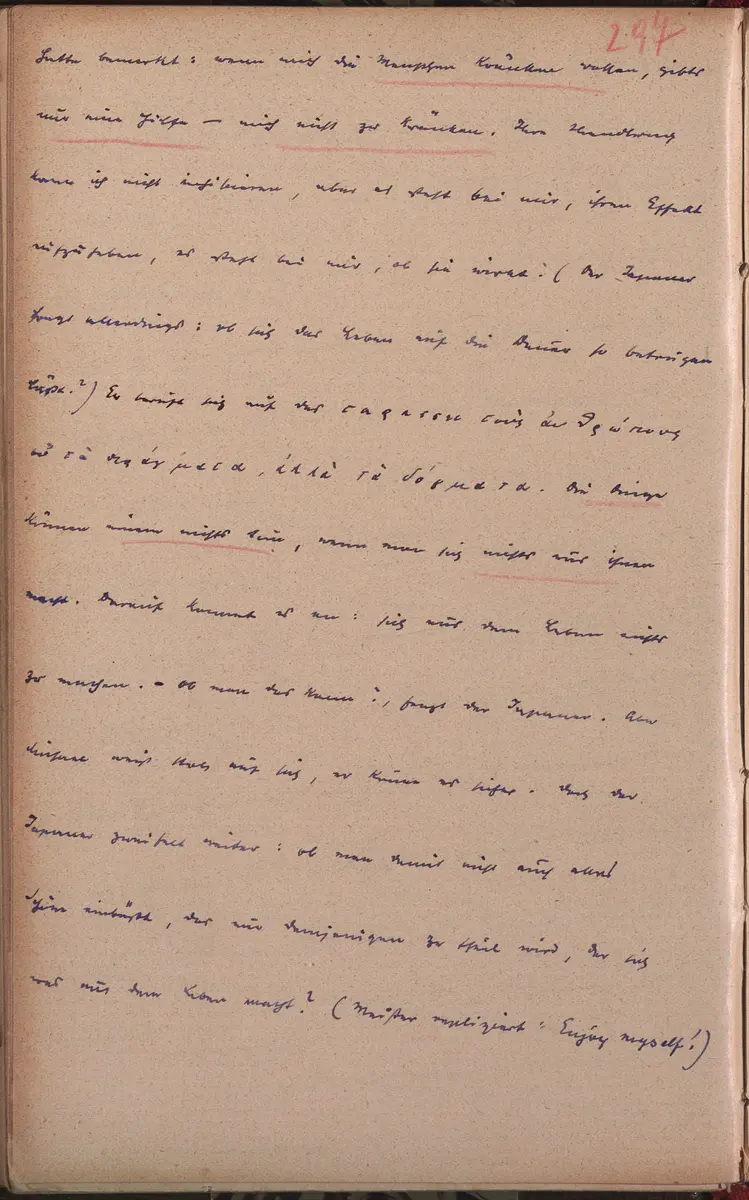 297
hatte bemerkt: wenn mich die Menschen kränken wollen, gibts
nur eine Hilfe – mich nicht zu kränken. Ihre Handlung
kann ich nicht inhibieren, aber es steht bei mir, ihren Effekt
aufzuheben, es steht bei mir, ob sie wirkt! (Der Japaner
fragt allerdings: ob sich das Leben auf die Dauer so betrügen
läßt?) Er beruft sich auf das ταρασσει τοὺς ἀνθρώπους
οὐ τὰ πράγματα, ἀλλὰ τὰ δόγματα. Die Dinge
können einem nichts tun, wenn man sich nichts aus ihnen
macht. Darauf kommt es an: sich aus dem Leben nichts
zu machen. – Ob man das kann?, fragt der Japaner. Der
weist stolz auf sich, er könne es sicher. Doch der
Japaner zweifelt weiter: ob man damit nicht auch alles
Schöne einbüßt, das nur demjenigen zu theil wird, der sich
was aus dem Leben macht? (Meister repliziert: Enjoy myself!)